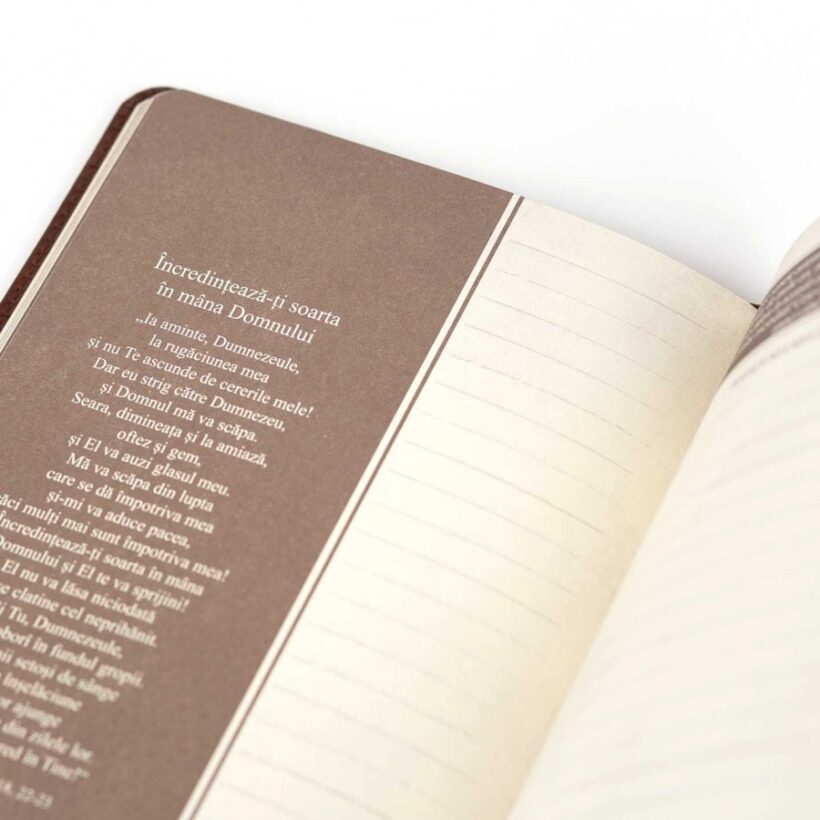 Încredințează-ți soarta
în mâna Domnului
„Ia aminte, Dumnezeule,
la rugăciunea mea
și nu Te ascunde de cererile mele!
Dar eu strig către Dumnezeu,
și Domnul mă va scăpa.
Seara, dimineața și la amiază,
oftez și gem,
și El va auzi glasul meu.
Mă va scăpa din lupta
care se dă împotriva mea
și-mi va aduce pacea,
căci mulți mai sunt împotriva mea!
Încredințează-ți soarta în mâna
Domnului și El te va sprijini!
El nu va lăsa niciodată
clatine cel neprihănit.
Tu, Dumnezeule,
în fundul gropii.
setoși de sânge
înșelăciune
ajunge
din zilele lor.
în Tine!”
22-23